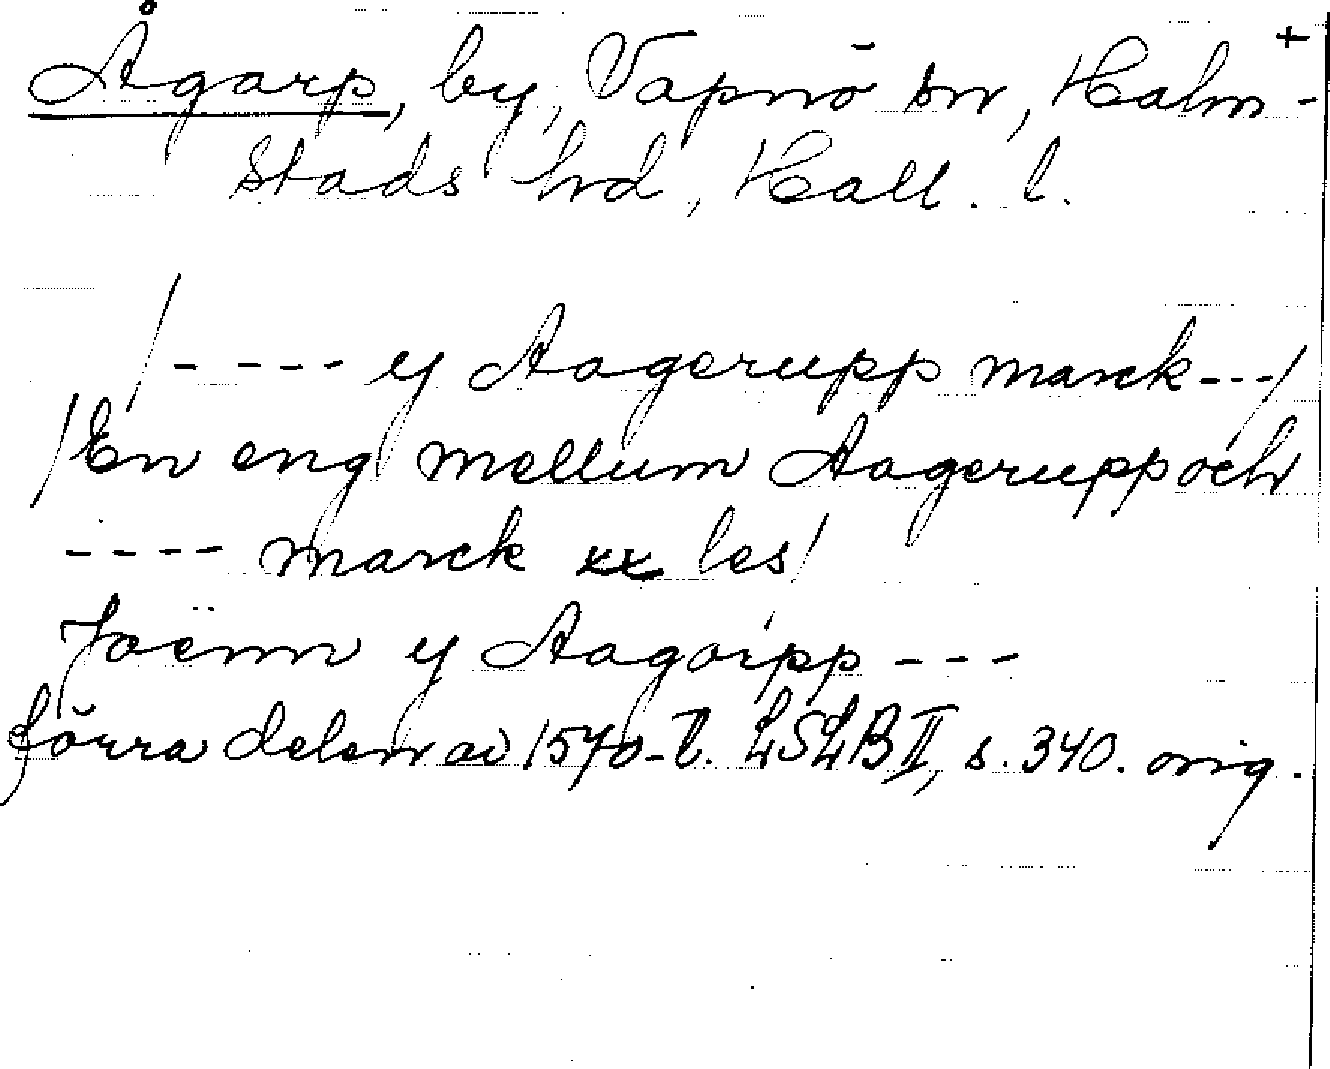 +
Ågarp, by, Vapnö sn, Halm-
stads hrd, Hall. l.
/---- y Aagerupp marck---/
/En eng mellum Aagerupp och
---- marck xx les/
Joënn y Aagoripp ---
förra delen av 1570-t. LSLB II, s. 340. orig.